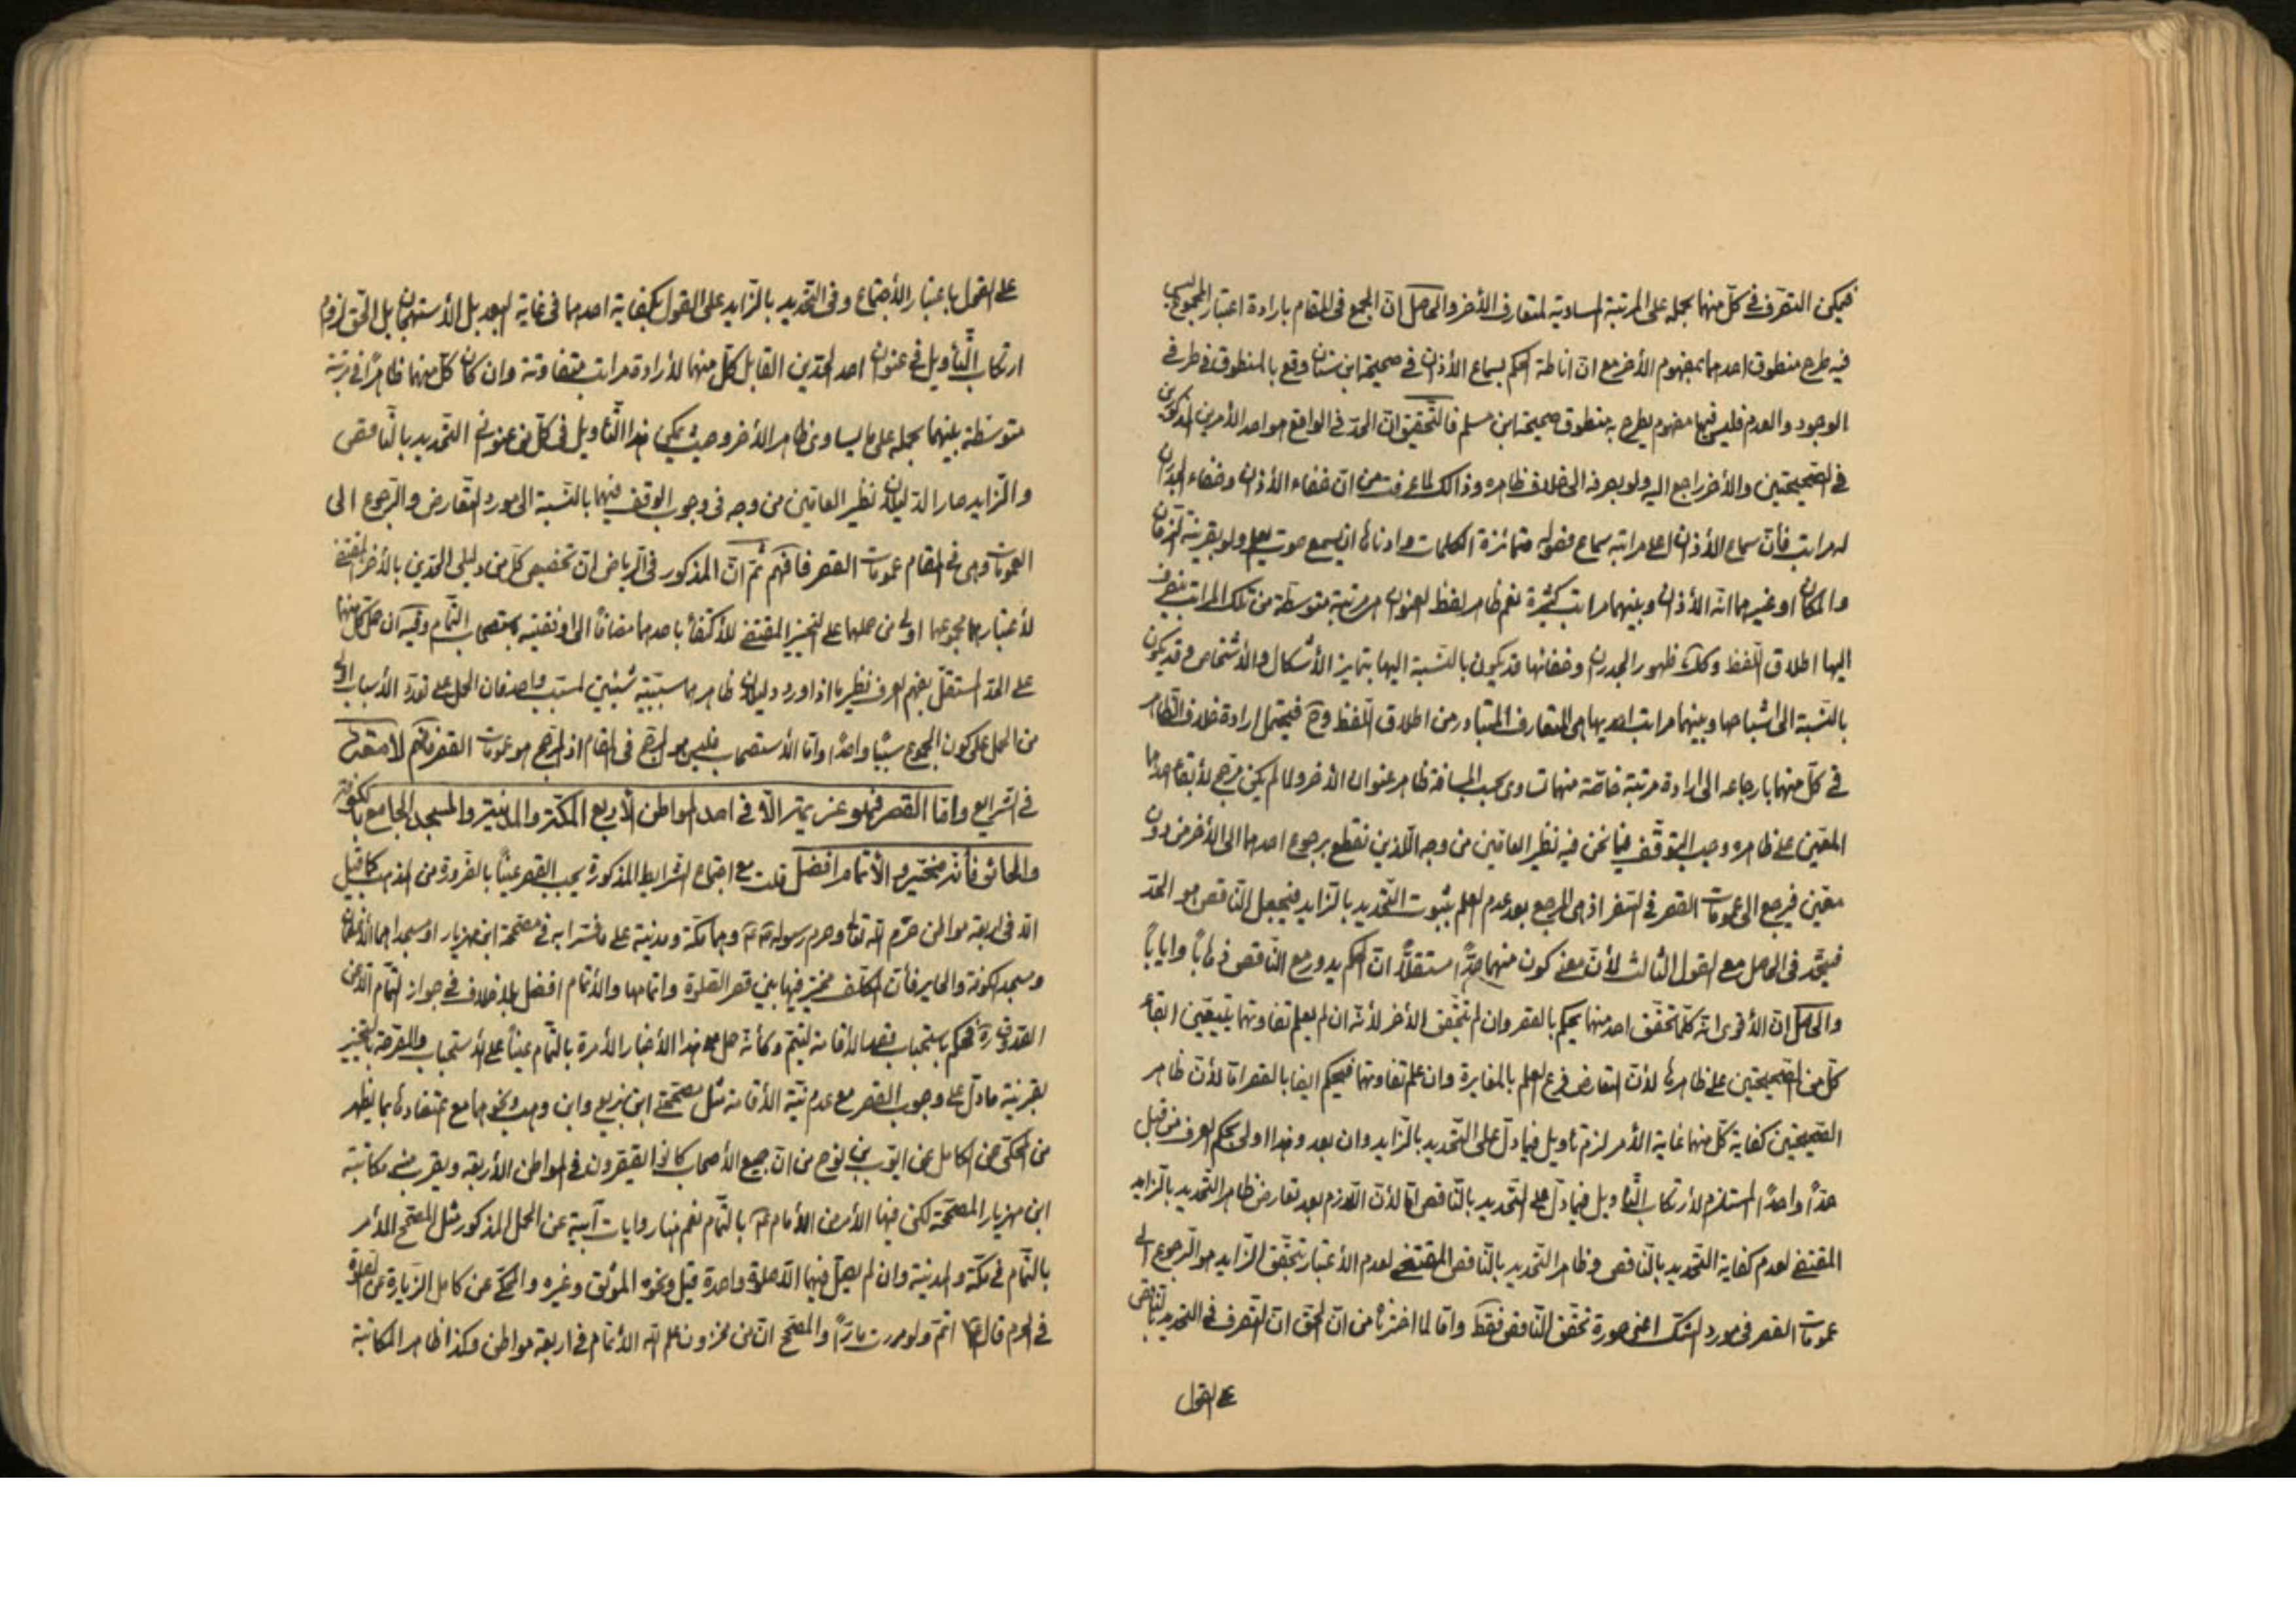 فيمكن التصرف في كل منهما بحمله على المرتبة المساوية لمتعارف الأخر والحاصل ان الجمع في المقام بارادة اعتبار المجموع ليس
فيه طرح منطوق احدهما بمفهوم الأخر مع ان اناطة الحكم بسماع الأذان في صحيحة ابن سنان وقع بالمنطوق في طرفي
الوجود والعدم فليس فيها مفهوم يطرح به منطوق صحيحة ابن مسلم فالتحقيق ان الحد في الواقع هو احد الأمرين المذكورين
في الصحيحتين والأخر راجع اليه ولو بصرفه الى خلاف ظاهره وذالك لما عرفت من ان خفاء الأذان وخفاء الجدران
لهما مراتب فأن سماع الأذان اعلى مراتبه سماع فصوله متمائزة الكلمات وادناها ان يسمع صوت يعلم ولو بقرينة الزمان
والمكان او غيرهما انه الأذان وبينهما مراتب كثيرة نعم ظاهر لفظ العنوان هو مرتبة متوسطة من تلك المراتب ينصرف
اليها اطلاق اللفظ وكذا ظهور الجدران وخفائها قد يكون بالنسبة اليها بتمايز الأشكال والأشخاص وقد يكون
بالنسبة الى اشباحها وبينهما مراتب احديها هي المتعارف المتبادر من اطلاق اللفظ وح فيحتمل ارادة خلاف الظاهر
في كل منهما بارجاعه الى ارادة مرتبة خاصة منها تساوي بحسب المسافة ظاهر عنوان الأخر ولما لم يكن مرجح لأبقاء احدهما
المعين على ظاهره وجب التوقف فيما نحن فيه نظير العامين من وجه اللذين نقطع برجوع احدهما الى الأخر من دون
معين فيرجع الى عمومات القصر في السفر اذ هي المرجع بعد عدم العلم بثبوت التحديد بالزايد فيجعل الناقص هو الحد
فيتحد في الحاصل مع القول الثالث لأن معنى كون منهما حدا مستقلا ان الحكم يدور مع الناقص ذهابا وايابا
والحاصل ان الأقوى انه كلما تحقق احد منهما يحكم بالقصر وان لم يتحقق الأخر لأنه ان لم يعلم تفاوتهما يتعين ابقاء
كل من الصحيحتين على ظاهرها لأن التعارض فرع العلم بالمغايرة وان علم تفاوتهما فيحكم ايضا بالقصر اما لأن ظاهر
الصحيحتين كفاية كل منهما غاية الأمر لزم تاويل فيما دل على التحديد بالزايد وان بعد وهذا اولى بحكم العرف من قبل
حدا واحدا المستلزم لأرتكاب التأويل فيما دل على التحديد بالناقص اما لأن اللازم بعد تعارض ظاهر التحديد بالزايد
المقتضي لعدم كفاية التحديد بالناقص وظاهر التحديد بالناقص المقتضي لعدم الأعتبار بتحقق الزايد هو الرجوع الى
عمومات القصر في مورد الشك اعني صورة تحقق الناقص فقط واما لما اخترنا من ان الحق ان التصرف في التحديد بالناقص
على القول
على القول باعتبار الأجتماع وفي التحديد بالزايد على القول بكفاية احدهما في غاية البعد بل الأستهجان بل الحق لزوم
ارتكاب التأويل في عنوان احد الحدين القابل كل منهما لأرادة مراتب متفاوتة وان كان كل منهما ظاهرا في مرتبة
متوسطة بينهما بحمله على ما يساوي ظاهر الأخر وحيث يمكن هذا التأويل في كل من عنواني التحديد بالناقص
والزايد صار الدليلان نظير العامين من وجه في وجوب الوقف فيهما بالنسبة الى مورد التعارض والرجوع الى
العمومات وهي في المقام عمومات القصر فافهم ثم ان المذكور في الرياض ان تخصيص كل من دليلي الحدين بالأخر المقتضي
لأعتبارهما مجموعهما اولى من حملهما على التخيير المقتضي للأكتفاء باحدهما مضافا الى اوفقيته باستصحاب التمام وفيه ان حمل كل منهما
على الحد المستقل يفهم العرف نظير ما اذا ورد دليلان ظاهرهما سببية شيئين لمسبب واحد فان الحمل على تعدد الأسباب اولى
من الحمل على كون المجموع سببا واحدا واما الأستصحاب فليس هو المرجع في المقام اذ المرجع هو عمومات القصر فافهم
في الشرايع واما القصر فهو عزيمة الا في احد المواطن الأربع المكة والمدينة والمسجد الجامع بالكوفة
والحائر فأنه مخير والأتمام افضل قلت مع اجتماع الشرايط المذكورة يجب القصر عينا بالضرورة من المذهب كما قيل
الا في اربعة مواطن حرم الله تعالى وحرم رسوله وهما مكة ومدينة على ما فسرا به في مصححة ابن مهزيار او مسجداهما
ومسجد الكوفة والحاير فأن المكلف مخير فيها بين قصر الصلوة واتمامها والأتمام افضل بلا خلاف في جواز التمام الا عن
الصدوق ره فحكم باستحباب قصد الأقامة ليتم وكأنه حمل هذا الأخبار الأمرة بالتمام عينا على الأستحباب والمصرحة بالتخيير
بقرينة ما دل على وجوب القصر مع عدم نية الأقامة مثل مصححتي ابن بزيع وابن وهب ونحوهما مع اعتضادها بما يظهر
من المحكي عن الكامل عن ايوب بن نوح من ان جميع الأصحاب كانوا يقصرون في المواطن الأربعة ويقرب منه مكاتبة
ابن مهزيار المصححة لكن فيها الأمر من الأمام بالتمام نعم هنا روايات آبية عن الحمل المذكور مثل المصحح الأمر
بالتمام في مكة والمدينة وان لم يصل فيهما الا صلوة واحدة قيل ونحوه الموثق وغيره والمحكي عن كامل الزيارة عن الصلوة
في الحرم قال اتم ولو مررت مارا والمصحح ان من مخزون علم الله الأتمام في اربعة مواطن وكذا ظاهر المكاتبة